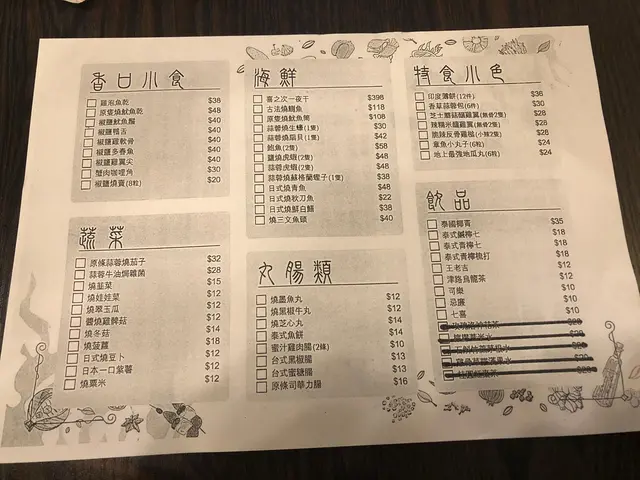 香口小食
雞泡魚乾 $38
原隻燒魷魚乾 $48
椒鹽魷魚鬚 $40
椒鹽鴨舌 $40
椒鹽雞軟骨 $40
椒鹽多春魚 $40
椒鹽雞翼尖 $40
蟹肉咖哩角 $30
椒鹽燒賣(8粒) $20
海鮮
喜之次一夜干 $398
古法燒鯛魚 $118
原隻燒魷魚筒 $108
蒜蓉燒生蠔(1隻) $30
蒜蓉燒扇貝(1隻) $42
鮑魚(2隻) $58
鹽燒虎蝦(2隻) $48
蒜蓉虎蝦(2隻) $48
蒜蓉燒蘇格蘭蟶子(1隻) $38
日式燒青魚 $48
日式燒秋刀魚 $22
日式燒鯖白鱔 $38
燒三文魚頭 $40
特食小色
印度薄餅(12件) $36
香草蒜蓉包(6件) $30
芝士蘑菇釀雞翼(無骨2隻) $28
辣糯米釀雞翼(無骨2隻) $28
脆辣反骨雞槌(小辣2隻) $28
章魚小丸子(6粒) $24
地上最強地瓜丸(6粒) $24
蔬菜
原條蒜蓉燒茄子 $32
蒜蓉牛油焗雜菌 $28
燒韮菜 $15
燒娃娃菜 $12
燒翠玉瓜 $12
醬燒雞髀菇 $12
燒冬菇 $14
燒菠蘿 $18
日式燒豆卜 $12
日本一口紫薯 $12
燒粟米 $12
丸腸類
燒墨魚丸 $12
燒黑椒牛丸 $12
燒芝心丸 $14
泰式魚餅 $14
蜜汁雞肉腸(2條) $10
台式黑椒腸 $13
台式蜜糖腸 $13
原條司華力腸 $16
飲品
泰國椰青 $35
泰式鹹檸七 $18
泰式青檸七 $18
泰式青檸梳打 $18
王老吉 $12
津路烏龍茶 $12
可樂 $10
忌廉 $10
七喜 $10